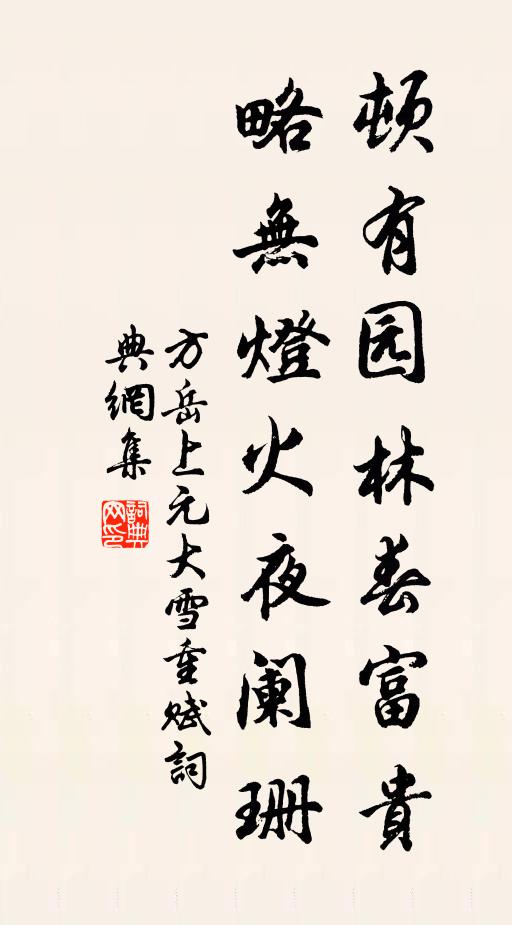 頓有园林春富貴
略無燈火夜阑珊
方岳上元大雪重赋詞
典網集
詞典网印